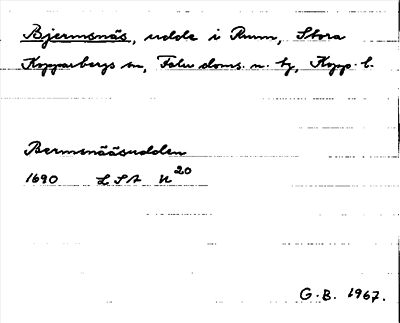 Bjermsnäs, udde i Runn, Stora
Kopparbergs sn, Falu doms. n. tg, Kopp. l.
Bermsnääsudden
1690 LSA U²⁰
G.B. 1967.